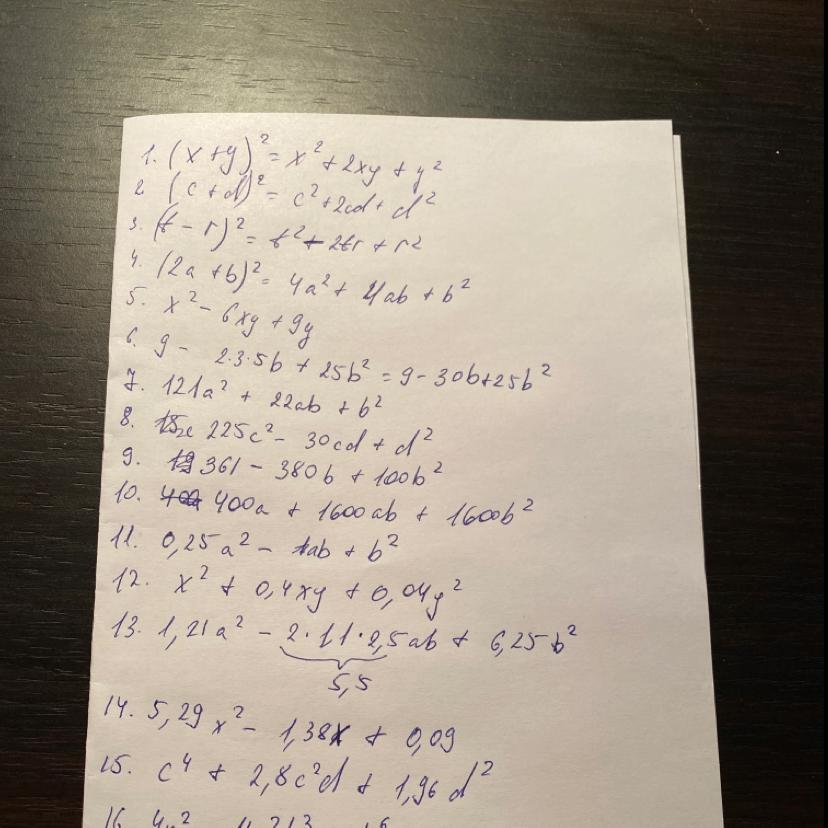 1. (x+y)² = x² + 2xy + y²
2. (c + d)² = c² + 2cd + d²
3. (t - r)² = t² - 2tr + r²
4. (2a + b)² = 4a² + 4ab + b²
5. x² - 6xy + 9y
6. 9 - 2·3·5b + 25b² = 9 - 30b + 25b²
7. 121a² + 22ab + b²
8. 225c² - 30cd + d²
9. 361 - 380b + 100b²
10. 400a + 1600ab + 1600b²
11. 0,25a² - 1ab + b²
12. x² + 0,4xy + 0,04y²
13. 1,21a² - 2·11·2,5ab + 6,25b²
5,5
14. 5,29x² - 1,38x + 0,09
15. c⁴ + 2,8c²d + 1,96d²
16.